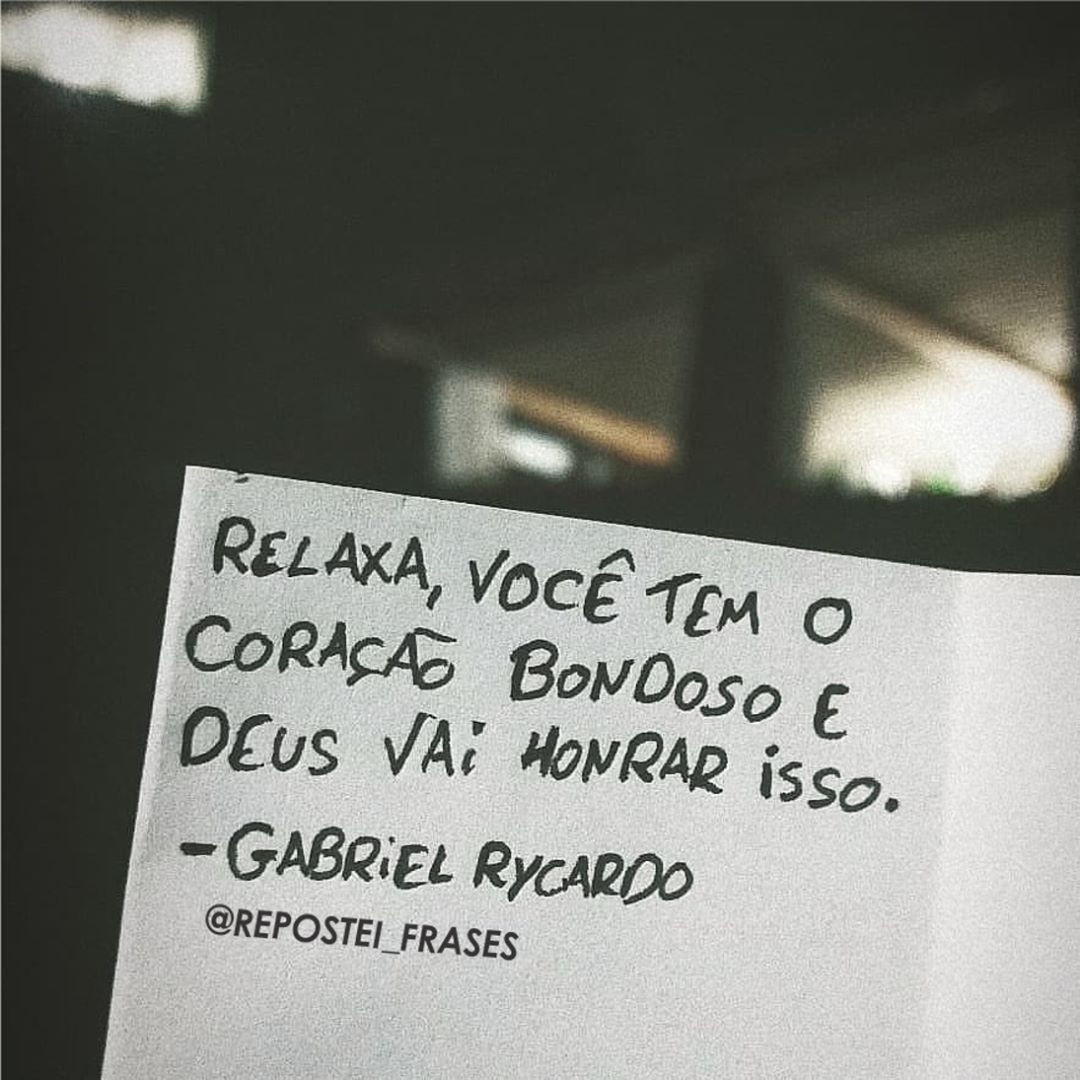 RELAXA, VOCÊ TEM O
CORAÇÃO BONDOSO E
DEUS VAi HONRAR isso.
- GABRiEL RYCARDO
@REPOSTEI_FRASES